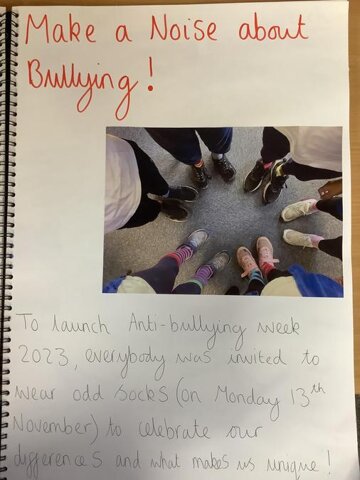 Make a Noise about
Bullying!
To launch Anti-bullying week
2023, everybody was invited to
wear odd socks (on Monday 13th
November) to celebrate our
differences and what makes us unique!